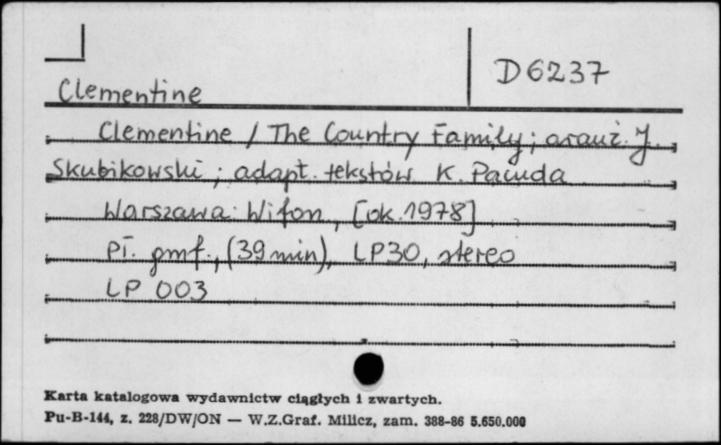 D 6237
Clementine
Clementine / The Country Family ; aranż. J.
Skubikowski ; adapt. tekstów K. Pacuda
Warszawa : Wifon, [ok. 1978]
Pł. gmf., (39 min), LP30, stereo
LP 003
Karta katalogowa wydawnictw ciągłych i zwartych.
Pu-B-144, z. 228/DW/ON — W.Z.Graf. Milicz, zam. 388-86 5.650.000